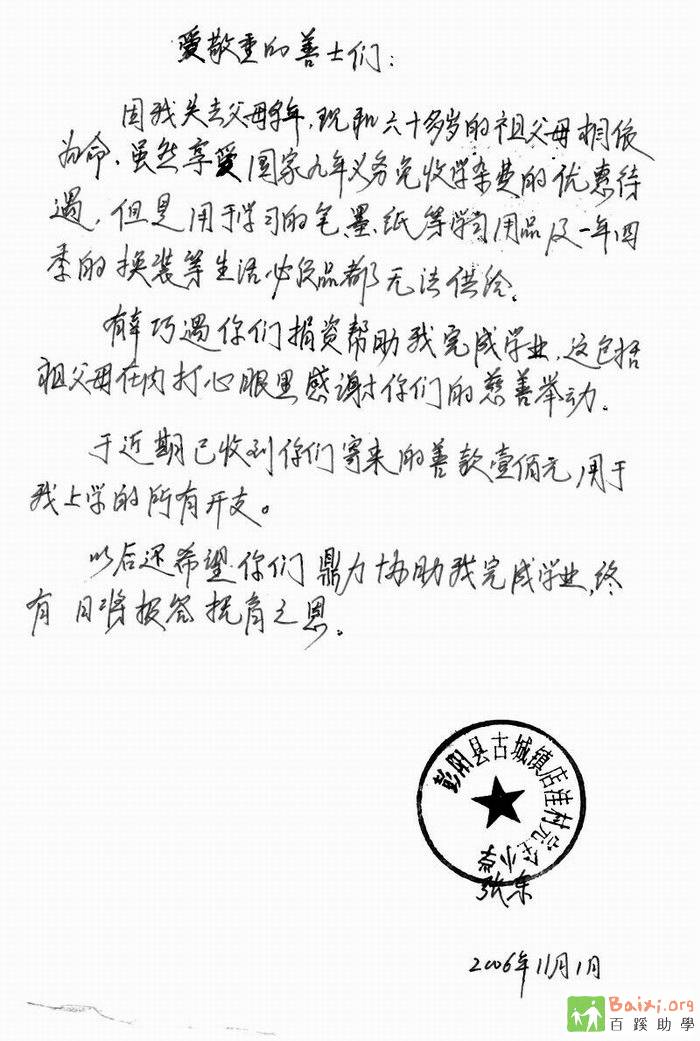 爱敬重的善士们:
因我失去父母多年,现和六十多岁的祖父母相依
为命,虽然享受国家九年义务免收学杂费的优惠待
遇,但是用于学习的笔、墨、纸等学习用品及一年四
季的换装等生活必须品都无法供给。
有幸巧遇你们捐资帮助我完成学业,这包括
祖父母在内打心眼里感谢你们的慈善举动。
于近期已收到你们寄来的善款壹佰元,用于
我上学的所有开支。
以后还希望你们鼎力协助我完成学业,终
有日将报答抚育之恩。
彭阳县古城镇店洼村完全小学
张东
2006年11月1日
Baixi.org
百蹊助學